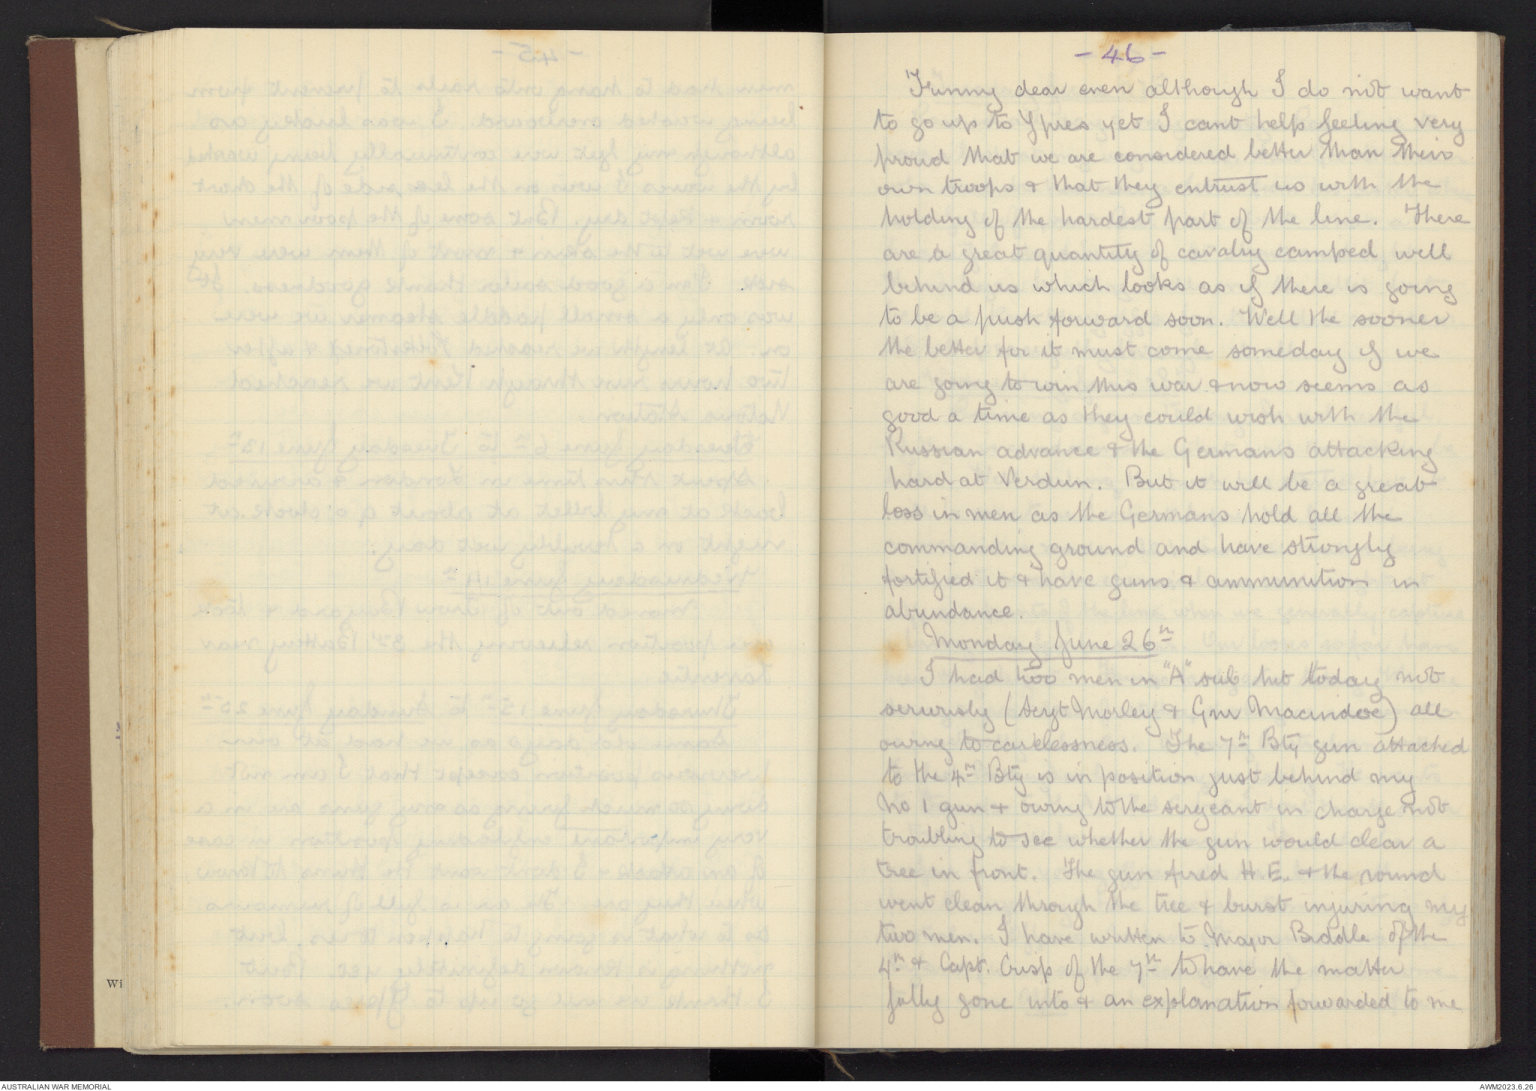 - 46 -
Funny dear even although I do not want
to go up to Ypres yet I cant help feeling very
proud that we are considered better than their
own troops & that they entrust us with the
holding of the hardest part of the line. There
are a great quantity of cavalry camped well
behind us which looks as if there is going
to be a push forward soon. Well the sooner
the better for it must come someday if we
are going to win this war & now seems as
good a time as they could wish with the
Russian advance & the Germans attacking
hard at Verdun. But it will be a great
loss in men as the Germans hold all the
commanding ground and have strongly
fortified it & have guns & ammunition in
abundance.
Monday June 26th
I had two men in "A" sub hit today not
seriously (Sergt Morley & Gnr Macindoe) all
owing to carelessness. The 7th Bty gun attached
to the 4th Bty is in position just behind my
No 1 gun & owing to the sergeant in charge not
troubling to see whether the gun would clear a
tree in front. The gun fired H.E. & the round
went clean through the tree & burst injuring my
two men. I have written to Major Biddle of the
4th & Capt. Crisp of the 7th to have the matter
fully gone into & an explanation forwarded to me
Wi
AUSTRALIAN WAR MEMORIAL
AWM2023.6.26